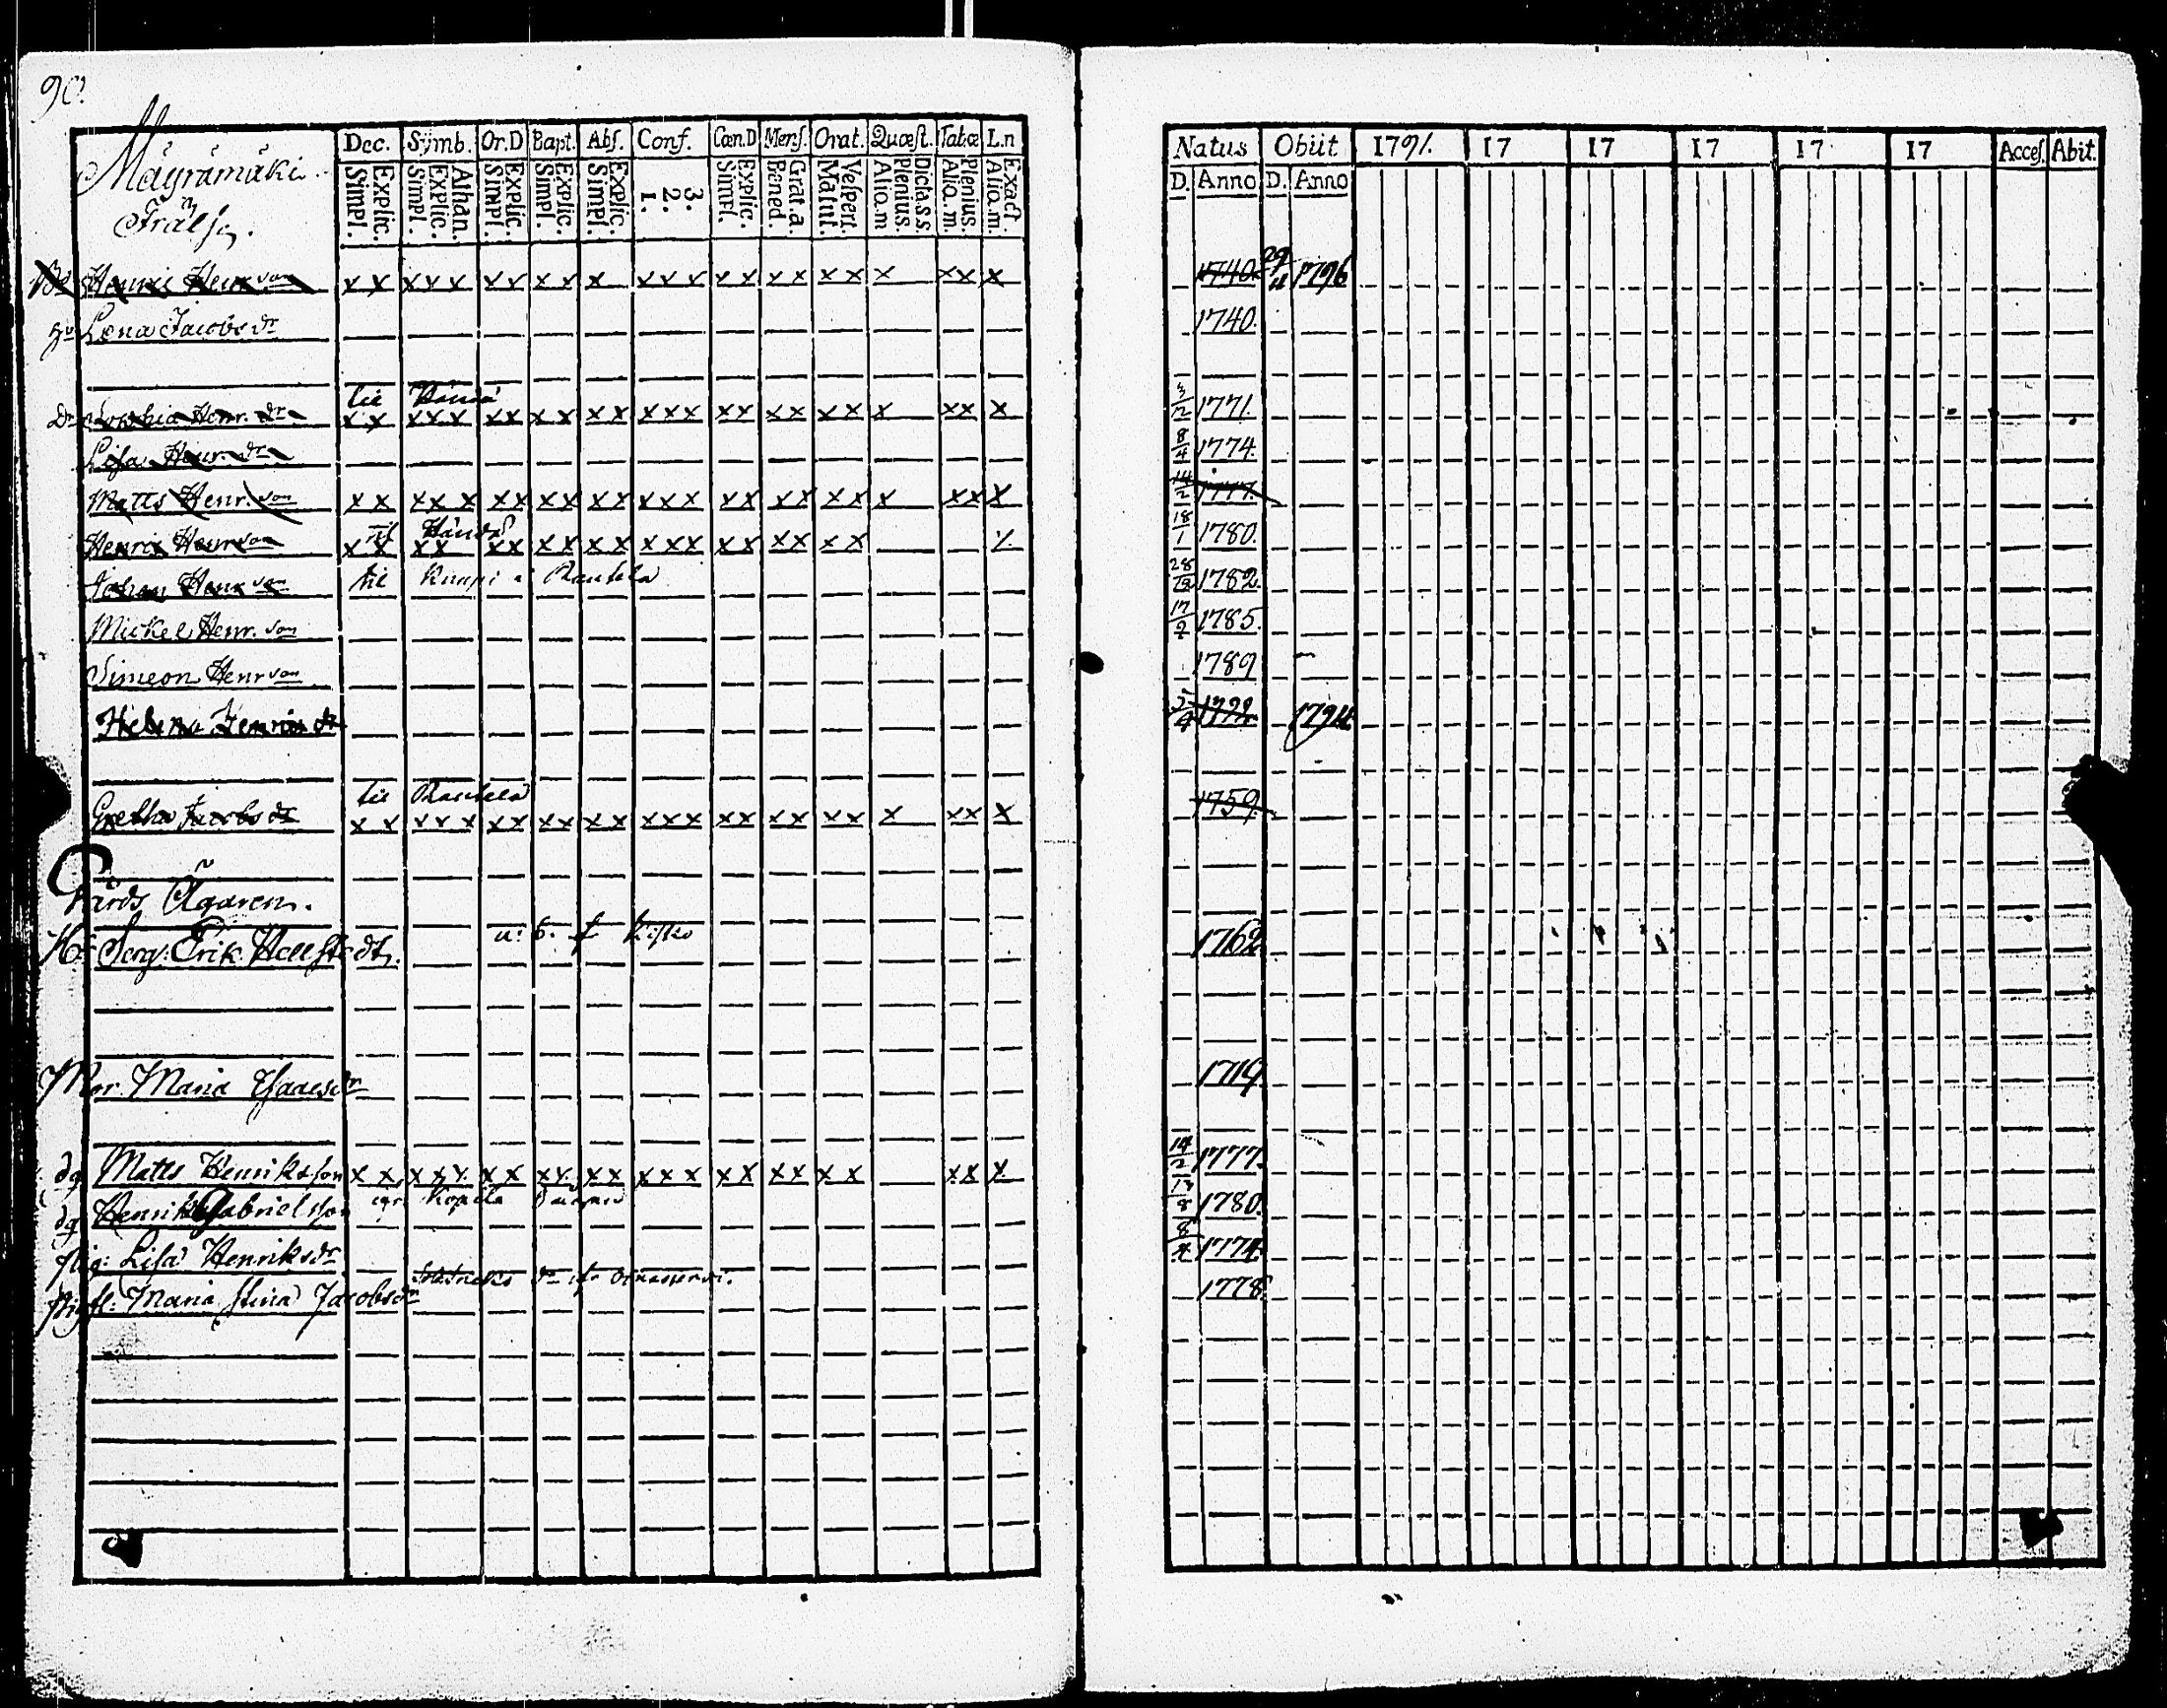 90.
Mäyrämäki
Frälse.
Dec. Symb. Or.D Bapt. Abſ. Conf. Cœn.D Menſ. Orat. Quæſt. Tab.œ L.n
Simpl. Explic. Simpl. Explic. Athan. Simpl. Explic. Simpl. Explic. Simpl. Explic. 1. 2. 3. Simpl. Explic. Bened. Grat.a. Matut. Veſpert. Aliq.m Plenius. Dicta s.s. Aliq.m. Plenius. Aliq.m. Exact.
Natus Obiit 1791. 17 17 17 17 17 Acceſ. Abit.
D. Anno D. Anno
Henric Henr son x x x x x x x x x x x x x x x x x x x x x x x 1740. 29/11 1796
hu Lena Jacobs dr 1740.
til
Dr Sophia Henr. dr x x x x x x x x x x x x x x x x x x x x x x x x 3/2 1771.
Lisa Henr. dr 8/4 1774.
Matts Henr. son x x x x x x x x x x x x x x x x x x x x x x x x 14/2 1777.
til
Henric Henr son x x x x x x x x x x x x x x x x x x x x 18/1 1780.
Johan Henr son til Knapi i Rautela 28/12 1782.
Mickel Henr. son 17/2 1785.
Simeon Henr son 1789
Helena Henrics dr 1794
til Rautela
Gretha Jacobs dr x x x x x x x x x x x x x x x x x x x x x x x x 1759.
Gårds Ägaren.
Hr Serg: Erik Hellstedt. Kisko 1762
Mor. Maria Isaacs dr 1719.
dg Matts Henriksson x x x x x x x x x x x x x x x x x x x x x x x 14/2 1777.
dg Henrik Gabrielsson 13/8 1780.
pig: Lisa Henriks dr 8/4 1774.
Maria Stina Jacobs dr 1778.